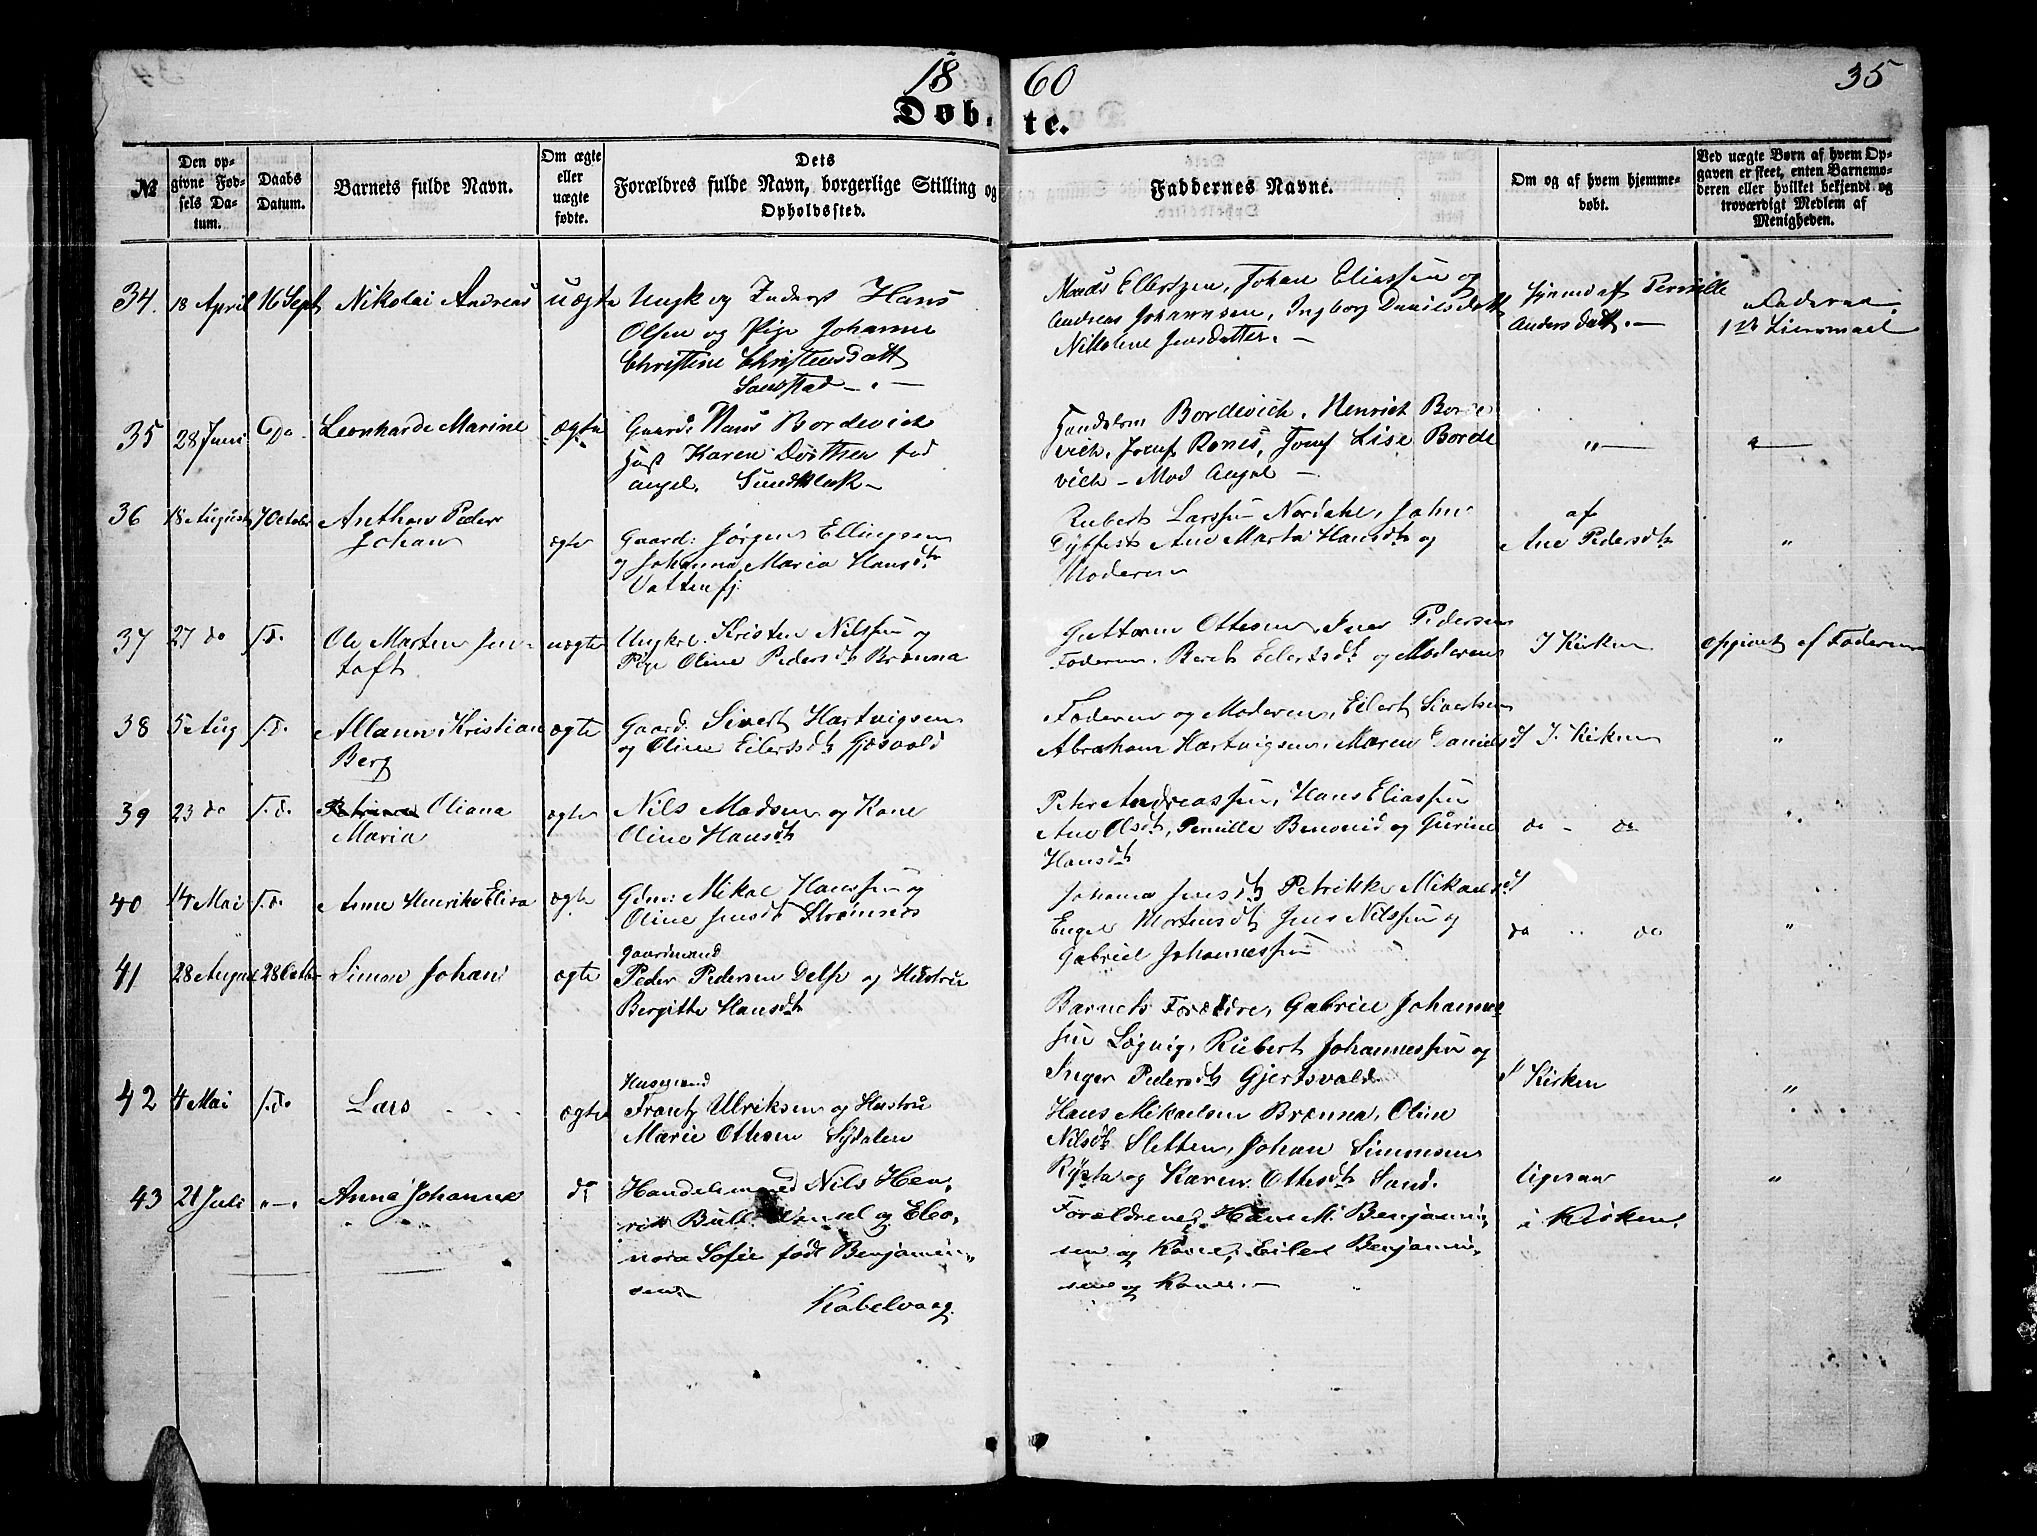 18 60 35
Døb- te.
№
Den op-
givne Fød-
sels Da-
tum.
Daabs
Datum.
Barnets fulde Navn.
Om ægte
eller
uægte
fødte.
Dets
Forældres fulde Navn, borgerlige Stilling og
Opholdssted.
Faddernes Navne.
Om og af hvem hjemme-
døbt.
Ved uægte Børn af hvem Op-
gaven er skeet, enten Barnemo-
deren eller hvilket bekjendt og
troværdigt Medlem af
Menigheden.
34. 18 April 16 Sept Nikolai Andreas uægte Ungk og Hans
Olsen og Pige Johanne
Christine Christensdatt
Mads Ellertzen, Johan Eliassen og
Andreas Johannsen, Ingborg Danielsdatt
Nikoline Jensdatter. —
Hjemmed af Pernille
Andersdatt. —
Faderen
1st Liermaal
35 28 Juni Do Leonharde Marine ægte Gaard: Hans Bordevich
Karen
Sundklak —
Bordevich, Henrich Borde
vich, Josef Rones, Lise Borde
vich — Mad Angel —
" —
" —
36 18 August 7 October Anthon Peder
Johan
ægte Gaard: Jørgen Ellingsen
og Johanna Maria Hansdt.
Vattenfj.
Rubert Larssen Nordahl, John
Ane Marta Hansdt og
Moderen
af
Ane Pedersdt
"
37 27 do s.d. Ole Marten Jen-
toft
uægte Ungkrl. Kristen Nilssen og
Pige Oline Pedersdt Brenna
Guttorm Ottesen, Iver Pedersen
Faderen, Beret Eilertsdt og Moderen
I Kirken
Opgivet af Faderen
38 5 Aug s.d. Allann Kristian
Berg
ægte Gaard. Sivert Hartvigsen
og Oline Eilertsdt Gjøsvold
Faderen og Moderen, Eilert Sivertsen
Abraham Hartvigsen, Maren Danielsd
I Kirken
"
39 23 do s.d. Oliana
Maria
ægte Nils Madsen og Kone
Oline Hansdt
Peter Andreassen, Hans Eliassen
Ane Olsdt, Pernille Benonid og Gurine
Hansdt
do - do
"
40 14 Mai s.d. Anne Henrikke Elisa ægte Gdm: Mikal Hanssen og
Oline Jensdt Strømnes
Johanna Jensdt Petrikke Mikaelsd
Engel Mortensdt Jens Nilssen og
Gabriel Johannessen
do " do
"
41 28 August 28 Octbr Simon Johan ægte
Gaardmand
Peder Pedersen Delp og Hustru
Bergitte Hansdt
Barnets Forældre, Gabriel Johannes
sen Løgvig, Rubert Johannessen og
Inger Pedersdt Gjertsvold
I Kirken
"
42 4 Mai s.d. Lars ægte
Husmand
Frantz Ulriksen og Hustru
Marie Ottesen Sydalen
Hans Mikaelsen Brenna, Oline
Nilsdt Sletten, Johan Simonsen
Rysta og Karen Ottesdt Sand.
"
43 21 Juli " — Anna Johanna do Handelsmand Nils Hen-
rik Bull og Eleo-
nora Sofie født Benjamin-
sen
Kabelvaag.
Forældrene, Hans M. Benjamin-
sen og Kone, Eilert Benjamin-
sen og Kone. —
Ligesaa
i Kirken.